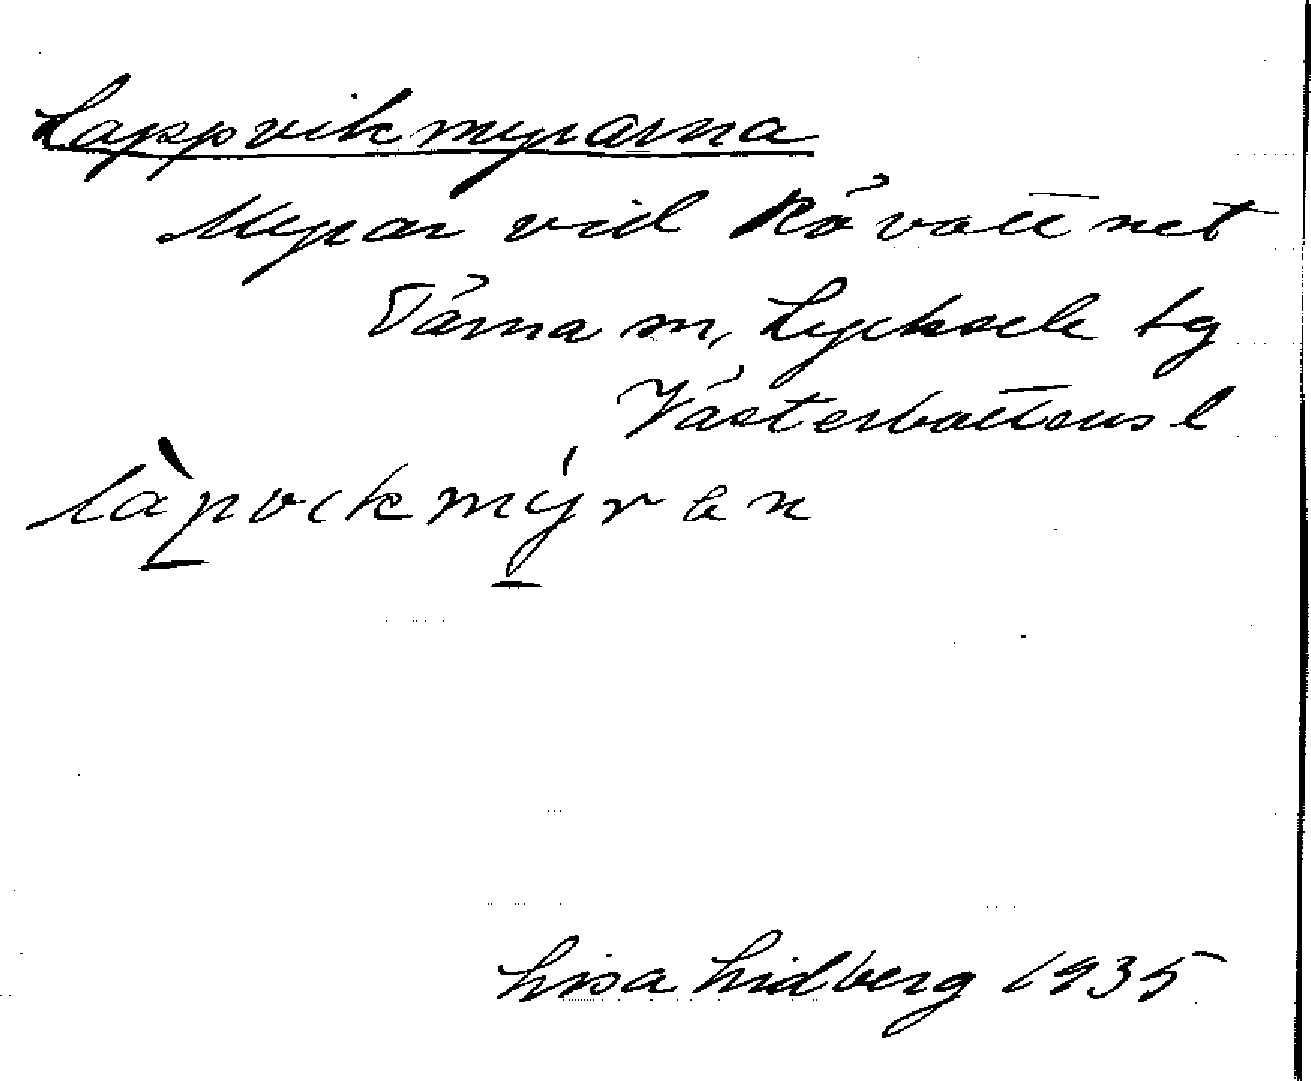 Lappvikmyrarna
Myrar vid Rövattnet
Tärna sn, Lycksele tg
Västerbottens l
làpvikmýran
Lisa Lidberg 1935